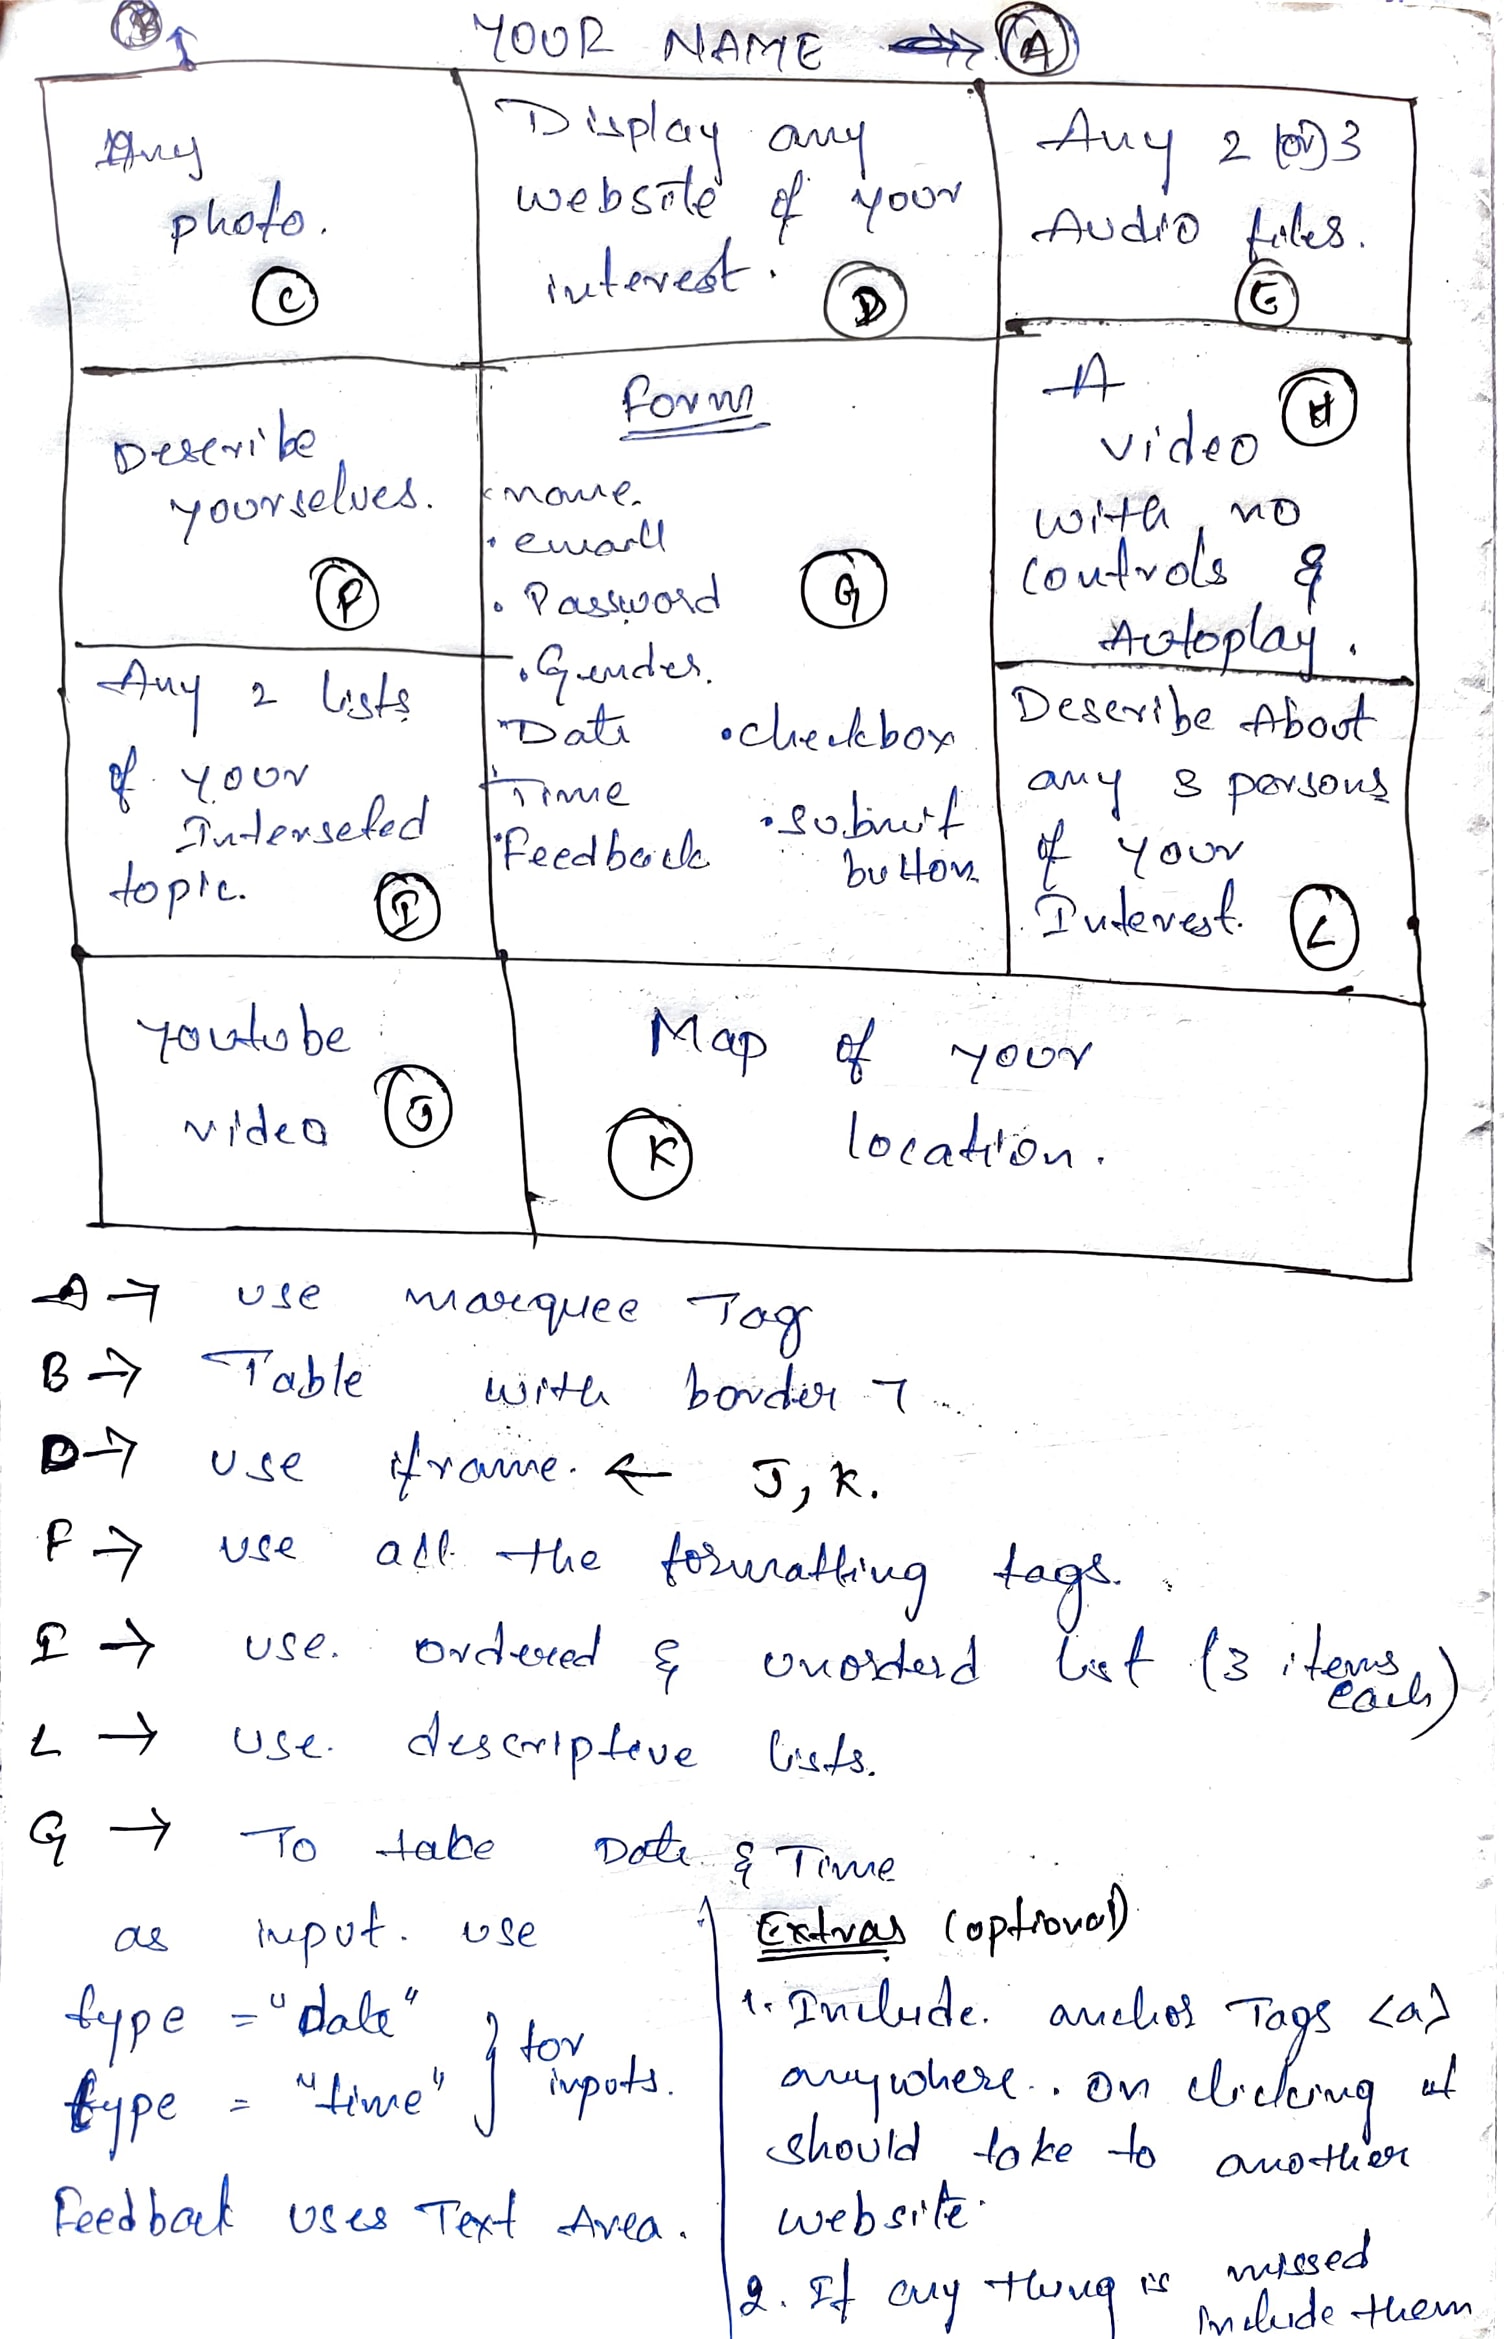 YOUR NAME → A
Any
photo.
C
Display any
website of your
interest.
D
Any 2 (or) 3
Audio files.
E
Describe
yourselves.
F
Form
name.
• email
• Password
• Gender.
Date
Time
• Feedback
• checkbox
• submit
button
G
A
video
with no
controls &
Autoplay.
H
Any 2 lists
of your
Interseted
topic.
I
Describe About
any 3 persons
of your
Interest.
L
youtube
video
J
Map of your
location.
K
A → use marquee Tag
B → Table with border 7
D → use iframe. ← J, K.
F → use all the formatting tags.
I → use. ordered & unorderd list (3 items each)
L → use. descriptive lists.
G → To take Date & Time
as input. use
type = "date"
type = "time" } for inputs.
Feedback uses Text Area.
Extras (optional)
1. Include. anchor Tags <a>
anywhere.. on clicking it
should take to another
website.
2. If any thing is missed
include them